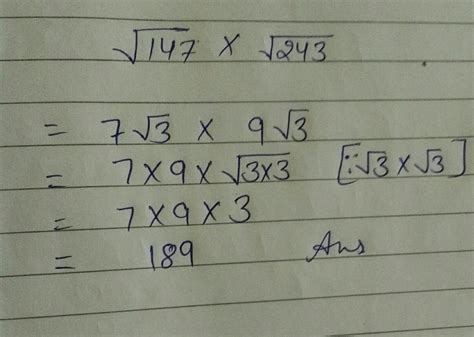 √147 × √243
= 7√3 × 9√3
= 7×9×√3×3 [∵√3×√3]
= 7×9×3
= 189 Ans